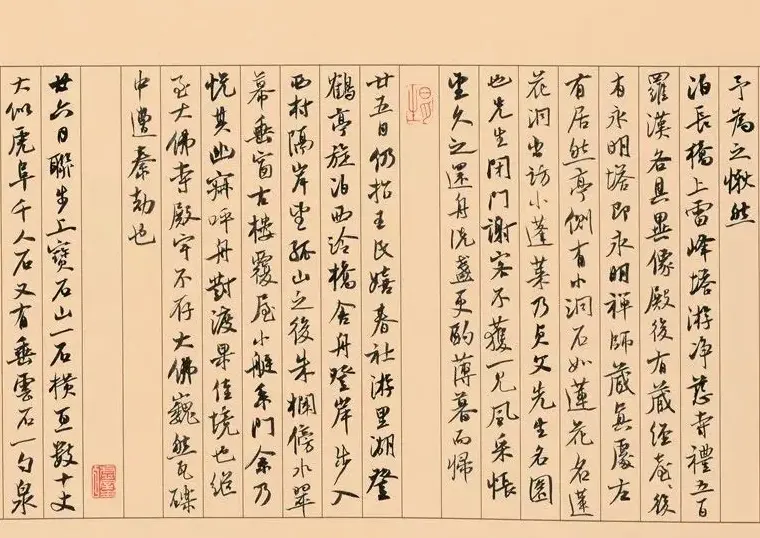 予為之愀然
泊長橋上雷峰塔游净慈寺禮五百
羅漢各具異像殿後有藏經臺、後
有永明塔即永明禪師藏真處左
有居然亭側有小洞石如蓮花名蓮
花洞出訪小蓬莱乃貞父先生名園
也先生閉門謝客不獲一見風采悵
望久之還舟洗盞更酌薄暮而歸
廿五日仍拉王民嬉春社游里湖登
鶴亭旋泊西泠橋舍舟登岸步入
西村隔岸望孤山之後朱欄傍水翠
幕垂窗古樓覆屋小艇系門余乃
悦其幽寂呼舟對渡果佳境也繼
至大佛寺殿宇不存大佛巍然瓦礫
中遭秦劫也
廿六日聯步上寶石山一石横亘數十丈
大似虎阜千人石又有垂雲石一勺泉